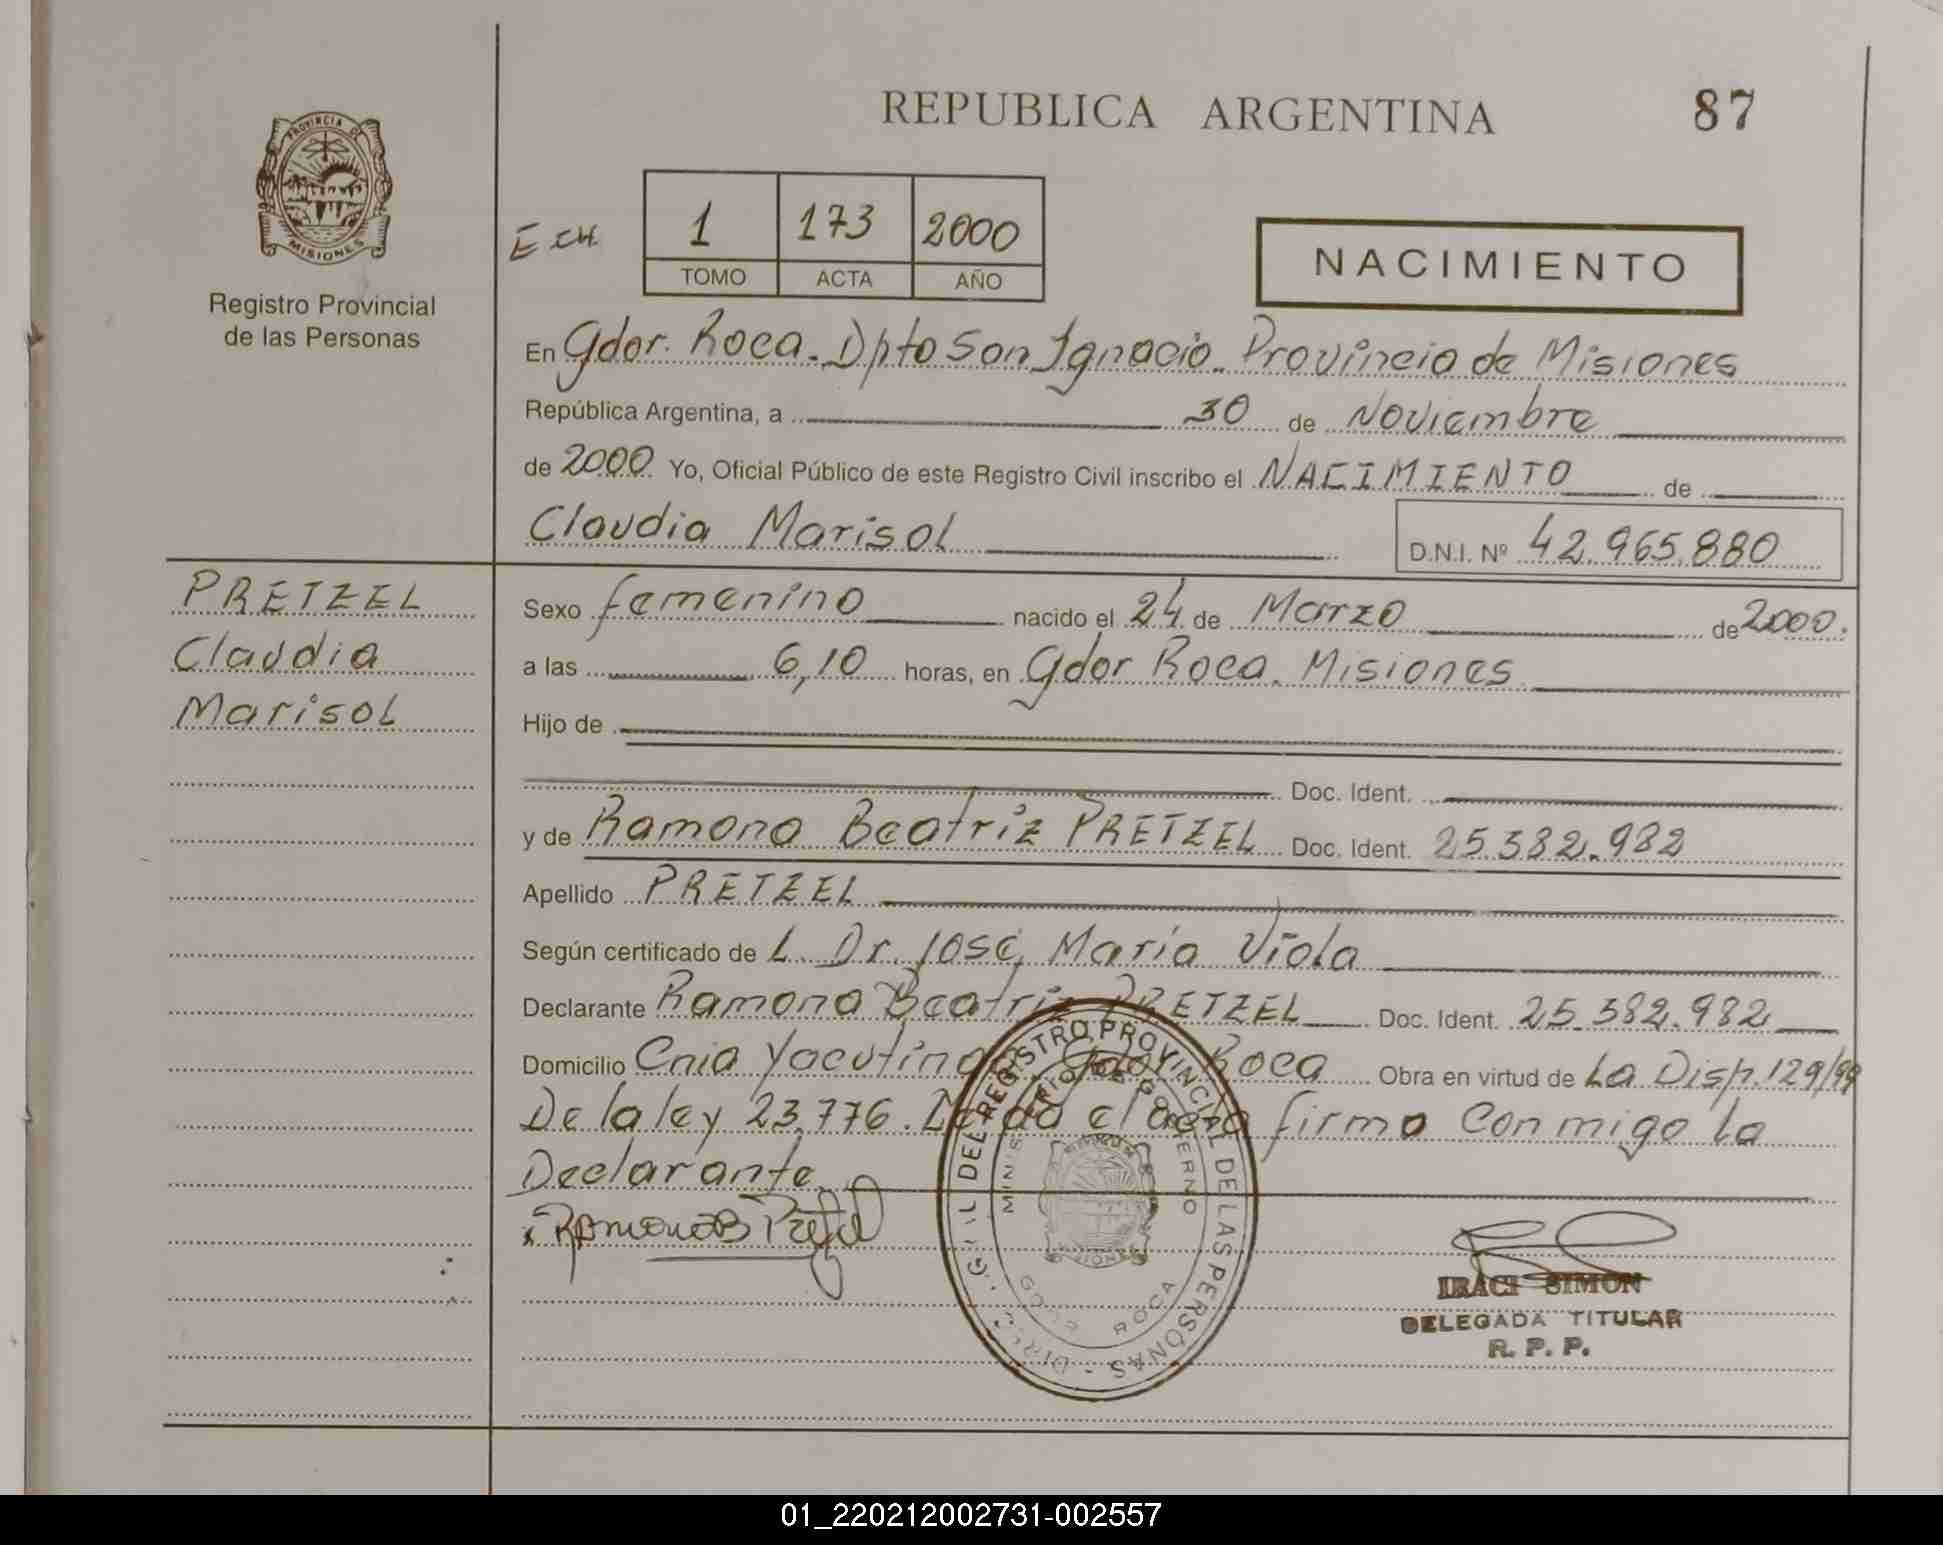 REPUBLICA ARGENTINA
87
PROVINCIA DE
MISIONES
Registro Provincial
de las Personas
1 173 2000
TOMO ACTA AÑO
NACIMIENTO
En Gdor. Roca. Dpto San Ignacio. Provincia de Misiones
República Argentina, a 30 de Noviembre
de 2000. Yo, Oficial Público de este Registro Civil inscribo el NACIMIENTO de
Claudia Marisol D.N.I. Nº 42.965.880
PRETZEL
Claudia
Marisol
Sexo femenino nacido el 24 de Marzo de 2000.
a las 6,10 horas, en Gdor Roca. Misiones
Hijo de
Doc. Ident.
y de Ramona Beatriz PRETZEL Doc. Ident. 25.382.982
Apellido PRETZEL
Según certificado de L. Dr. José María Viola
Declarante Ramona Beatriz PRETZEL Doc. Ident. 25.382.982
Domicilio Cnia Yacutinga Gdor Roca Obra en virtud de La Disp. 129/99
De la ley 23.776. Leída el acta firma Conmigo la
Declarante.
Ramona B Pretzel
REGISTRO PROVINCIAL DE LAS PERSONAS
MINISTERIO DE GOBIERNO
MISIONES
GDOR ROCA
IRACI SIMON
DELEGADA TITULAR
R. P. P.
01_220212002731-002557